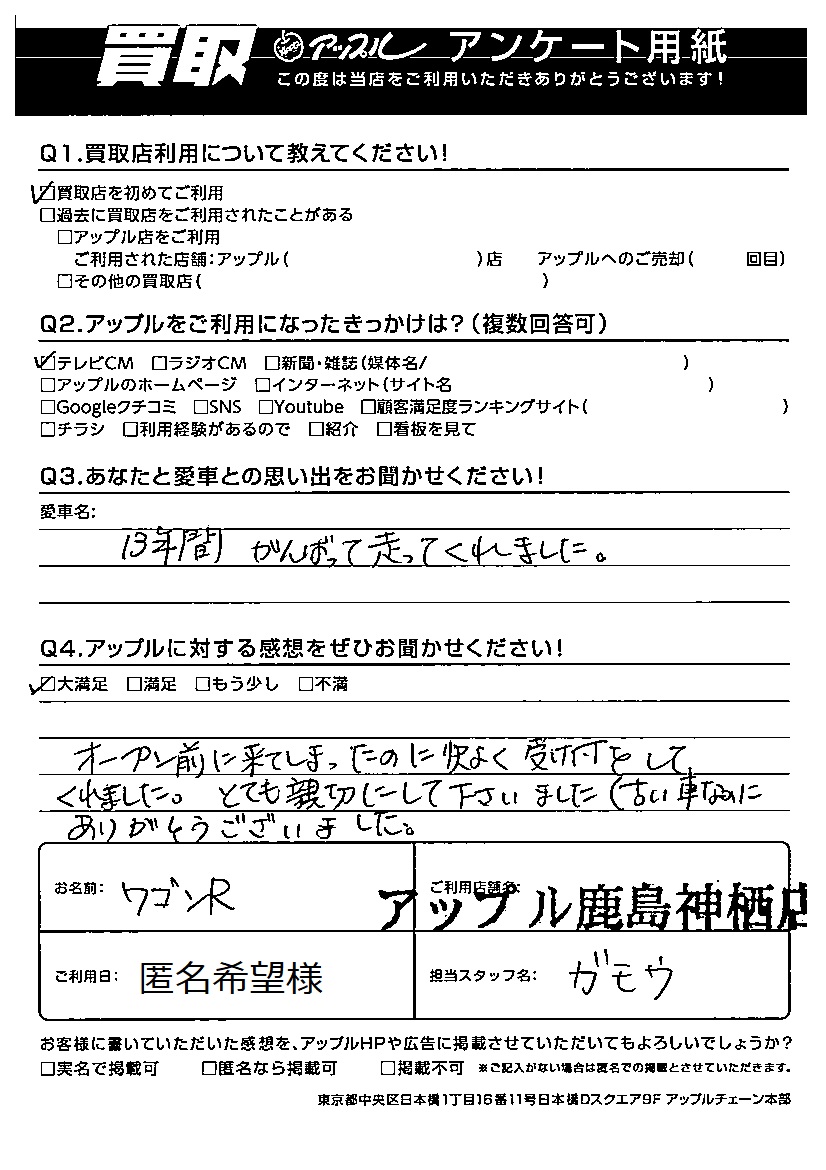 買取 アップル アンケート用紙
この度は当店をご利用いただきありがとうございます!
Q1.買取店利用について教えてください!
☑買取店を初めてご利用
□過去に買取店をご利用されたことがある
□アップル店をご利用
ご利用された店舗:アップル( )店 アップルへのご売却( 回目)
□その他の買取店( )
Q2.アップルをご利用になったきっかけは?(複数回答可)
☑テレビCM □ラジオCM □新聞・雑誌(媒体名/ )
□アップルのホームページ □インターネット(サイト名 )
□Googleクチコミ □SNS □Youtube □顧客満足度ランキングサイト( )
□チラシ □利用経験があるので □紹介 □看板を見て
Q3.あなたと愛車との思い出をお聞かせください!
愛車名:
13年間 がんばって走ってくれました。
Q4.アップルに対する感想をぜひお聞かせください!
☑大満足 □満足 □もう少し □不満
オープン前に来てしまったのに快よく受け付をして
くれました。とても親切にして下さいました(古い車なのに
ありがとうございました。
お名前: ワゴンR ご利用店舗名: アップル鹿島神栖店
ご利用日: 匿名希望様 担当スタッフ名: ガモウ
お客様に書いていただいた感想を、アップルHPや広告に掲載させていただいてもよろしいでしょうか?
□実名で掲載可 □匿名なら掲載可 □掲載不可 ※ご記入がない場合は匿名での掲載とさせていただきます。
東京都中央区日本橋1丁目16番11号日本橋Dスクエア9F アップルチェーン本部